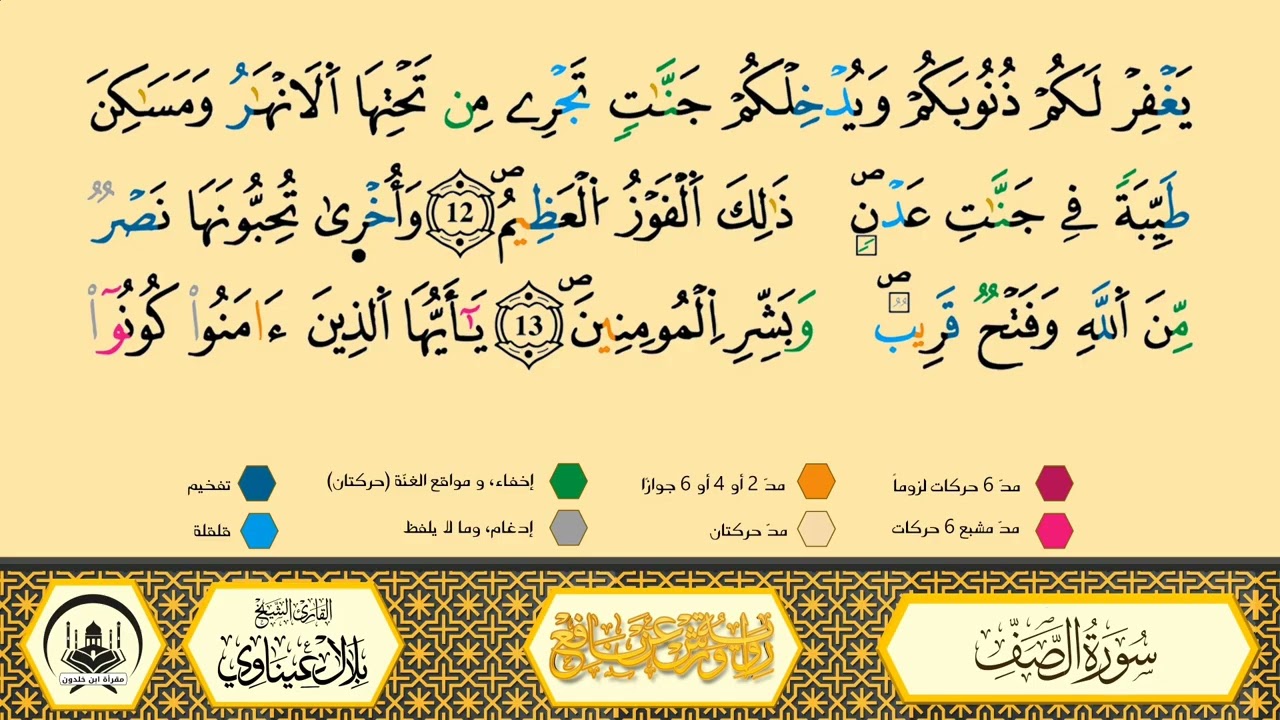 يَغْفِرْ لَكُمْ ذُنُوبَكُمْ وَيُدْخِلْكُمْ جَنَّٰتٍ تَجْرِے مِن تَحْتِهَا اَ۬لَانْهَٰرُ وَمَسَٰكِنَ
طَيِّبَةً فِے جَنَّٰتِ عَدْنٍۖ ذَٰلِكَ اَ۬لْفَوْزُ اُ۬لْعَظِيمُۖ 12 وَأُخْر۪يٰ تُحِبُّونَهَا نَصْرٌ
مِّنَ اَ۬للَّهِ وَفَتْحٌ قَرِيبٌۖ وَبَشِّرِ اِ۬لْمُومِنِينَۖ 13 يَٰٓأَيُّهَا اَ۬لذِينَ ءَامَنُواْ كُونُوٓاْ
مدّ 6 حركات لزوماً مدّ 2 أو 4 أو 6 جوازًا إخفاء، و مواقع الغنّة (حركتان) تفخيم
مدّ مشبع 6 حركات مدّ حركتان إدغام، وما لا يلفظ قلقلة
سُورَةُ الصَّفِّ
رواية ورش عن نافع
القارئ الشيخ
بلال عيناوي
مقرأة ابن خلدون